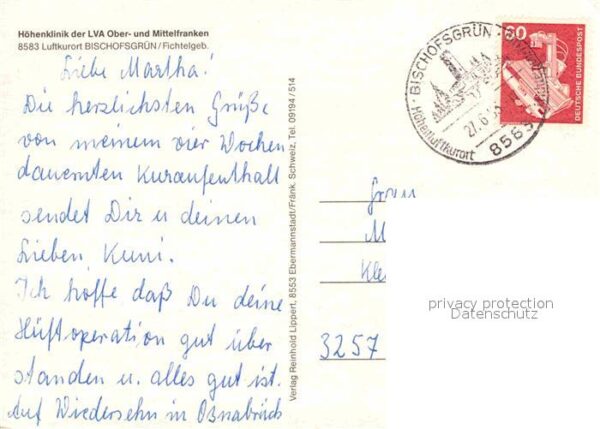 Höhenklinik der LVA Ober- und Mittelfranken
8583 Luftkurort BISCHOFSGRÜN/Fichtelgeb.
Liebe Martha!
Die herzlichsten Grüße
von meinem vier Wochen
dauernten Kuraufenthalt
sendet Dir u deinen
Lieben, Kuni.
Ich hoffe daß Du deine
Hüftoperation gut über
standen u. alles gut ist.
Auf Wiedersehn in Osnabrück
Verlag Reinhold Lippert, 8553 Ebermannstadt/Fränk. Schweiz, Tel. 09194/514
BISCHOFSGRÜN
Höhenluftkurort
27.6
8583
60
DEUTSCHE BUNDESPOST
Frau
M
Kle
privacy protection
Datenschutz
3257